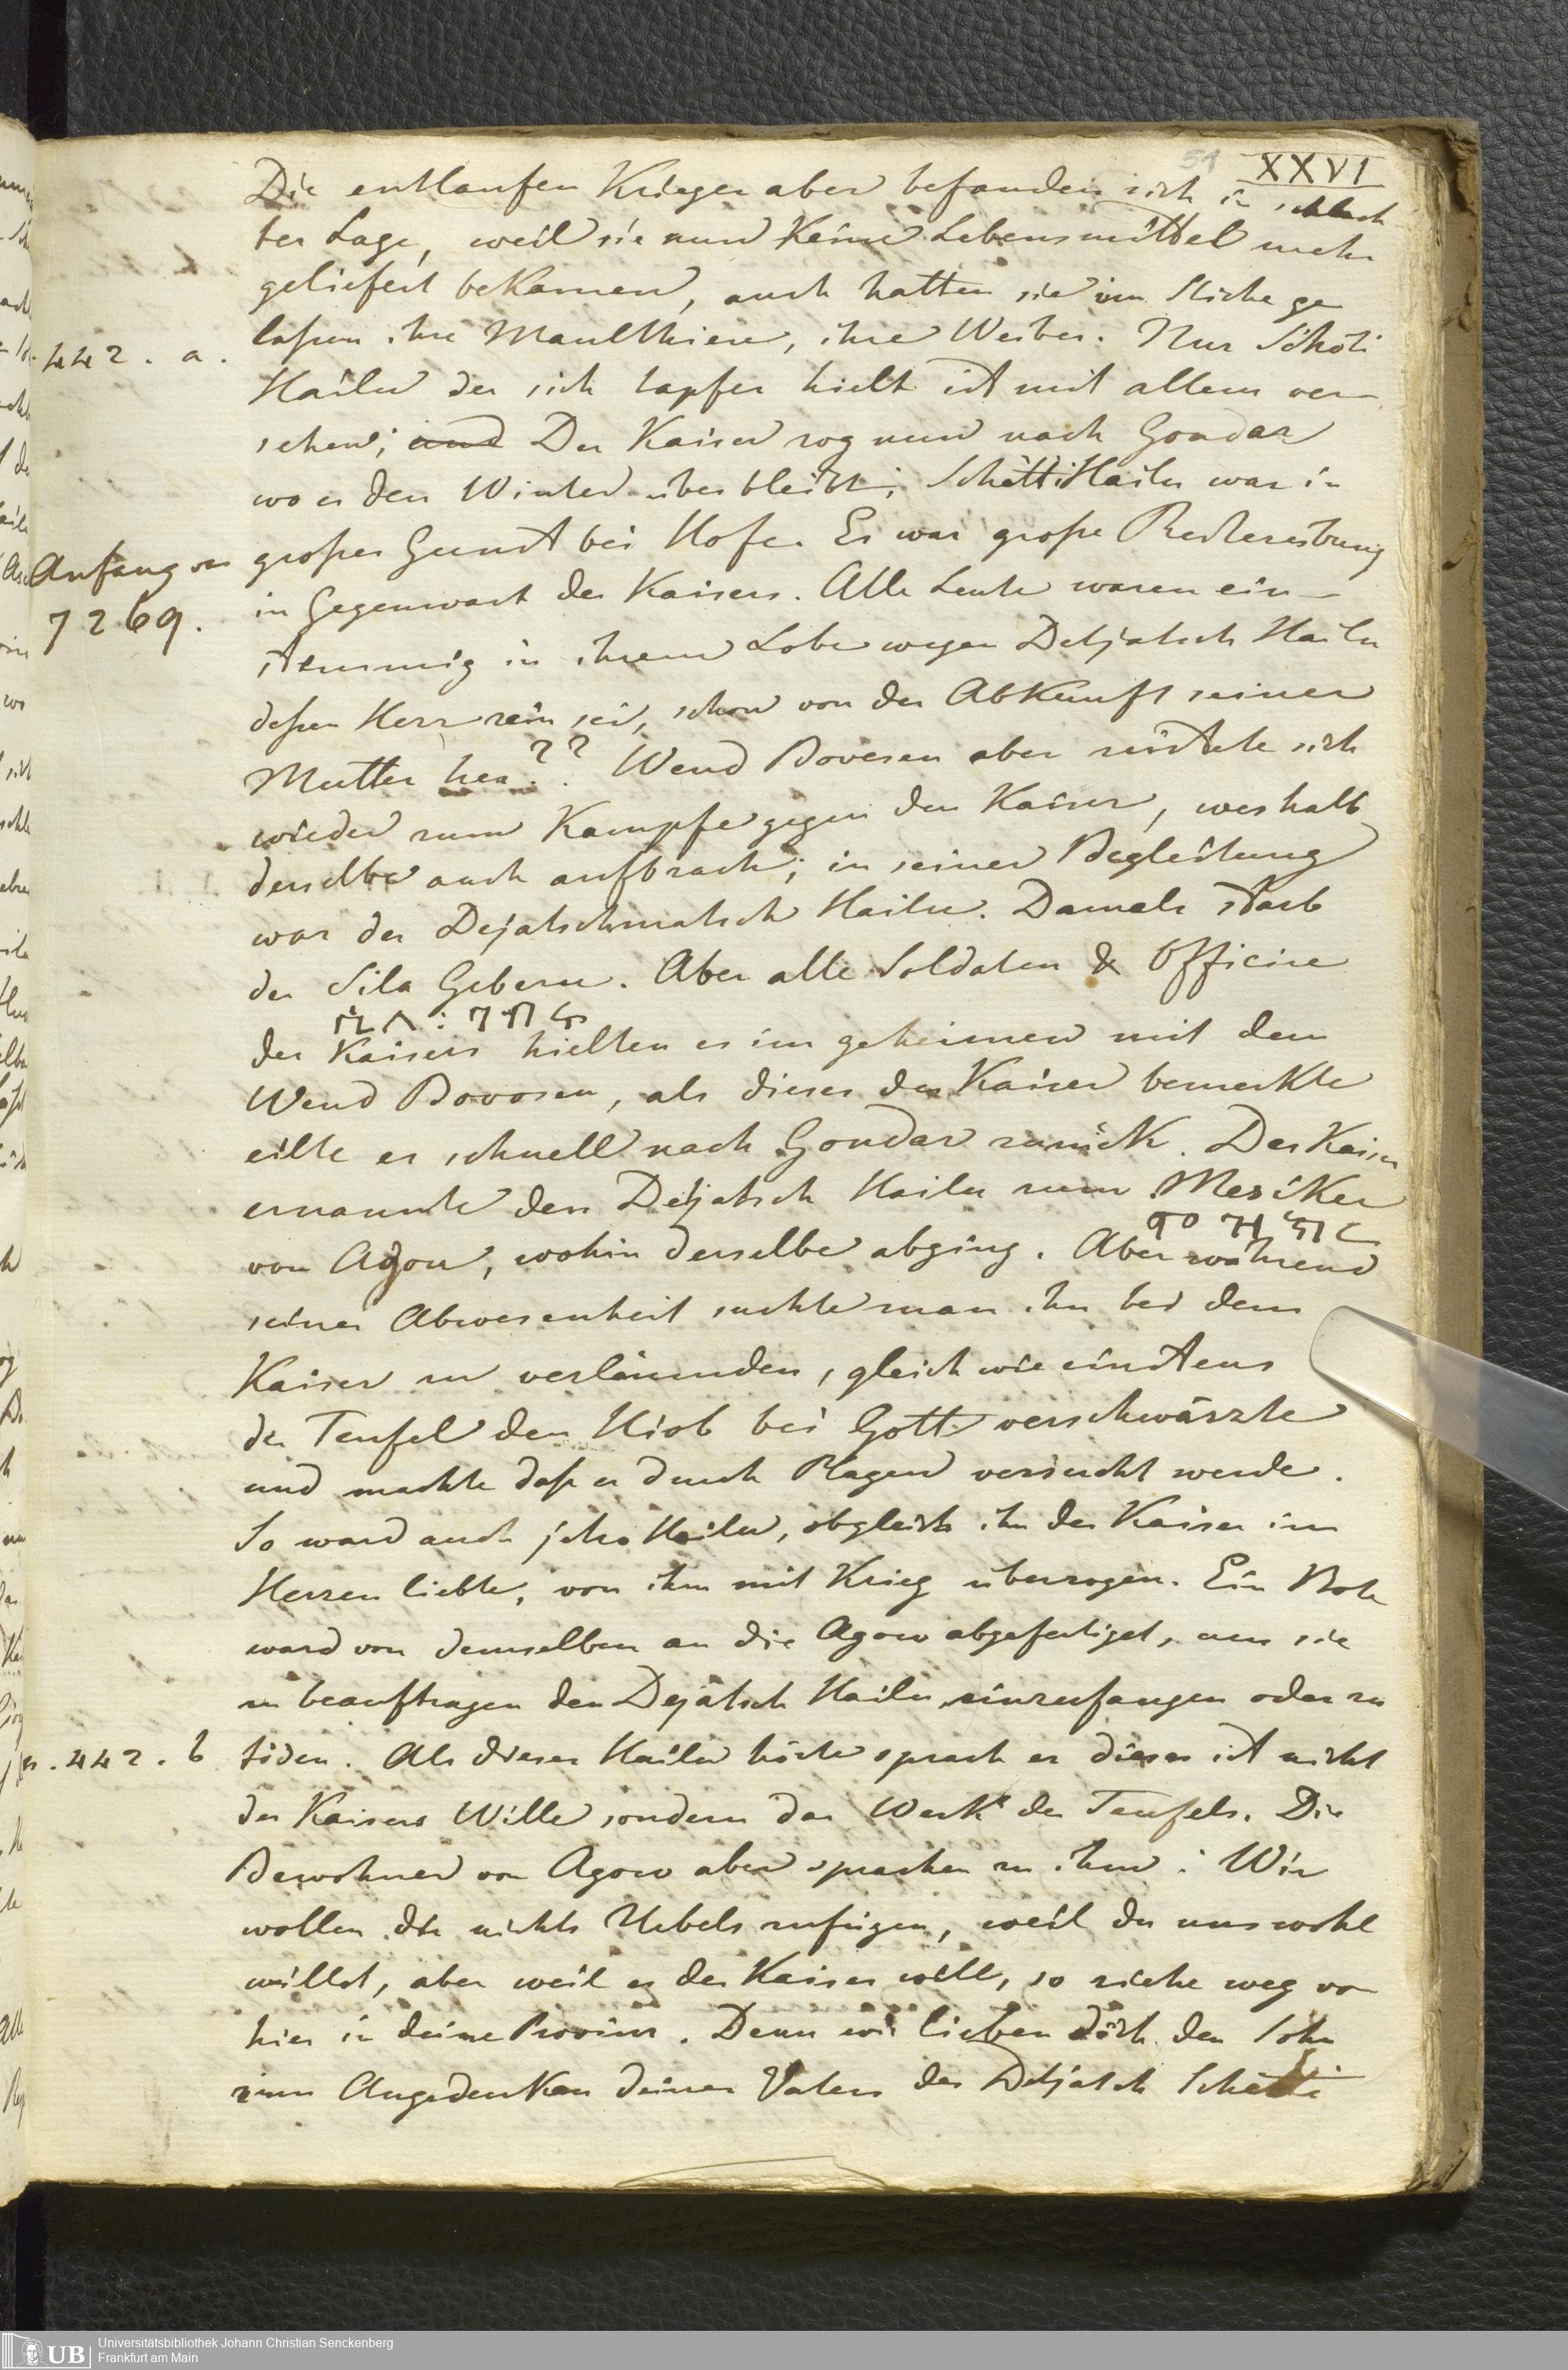 51 XXVI
Die entlaufen Krieger aber befanden sich in schlech
ter Lage, weil sie nun Keine Lebensmittel mehr
geliefert beKamen, auch hatten sie im Stiche ge
442. a. laßen ihre Maulthiere, ihre Weiber. Nur Schöti
Hailu der sich tapfer hielt ist mit allem ver-
sehen; und Der Kaiser zog nun nach Gondar
wo er den Winter über bleibt; SchöttiHailu war in
Anfang von großer Gunst bei Hofe. Es war große
7269. in Gegenwart des Kaisers. Alle Leute waren ein-
stimmig in ihrem Lobe wegen Detjatsch Hailu
deßen Herz rein sei, schon von der AbKunft seiner
Mutter her?? Wend Bovesen aber rüstete sich
wieder zum Kampfe gegen den Kaiser, weshalb
derselbe auch aufbrach; in seiner Begleitung
war der Dejatschmatsch Hailu. Damals starb
der Sila Gebern. Aber alle Soldaten & Officire
ሲላ : ገብሩ
des Kaisers hielten es im geheimen mit dem
Wend Bovosen, als dieses der Kaiser bemerkte
eilte er schnell nach Gondar zurücK. Der Kaiser
ernannte den Detjatsch Hailu zum MesiKer
መዝኽር
von Agow, wohin derselbe abging. Aber während
seiner Abwesenheit suchte man ihn bei dem
Kaiser zu verläumden, gleich wie einstens
der Teufel den Hiob bei Gott verschwärzte
und machte daß er durch Plagen versucht werde.
So ward auch jetzo Hailu, obgleich ihn der Kaiser im
Herzen liebte, von ihm mit Krieg überzogen. Ein Bote
ward von demselben an die Agow abgefertiget, um sie
zu beauftragen den Dejatsch Hailu einzufangen oder zu
442. b töden. Als dieses Hailu hörte sprach er dieses ist nicht
des Kaisers Wille sondern das Werk des Teufels. Die
Bewohner von Agow aber sprachen zu ihm: Wir
wollen dir nichts Uebels zufügen, weil du uns wohl
willst, aber weil es der Kaiser will, so ziehe weg von
hier in deine Provinz. Denn wir lieben dich den Sohn
zum AngedenKen deines Vaters des Detjatsch Schetti
Universitätsbibliothek Johann Christian Senckenberg
Frankfurt am Main
UB